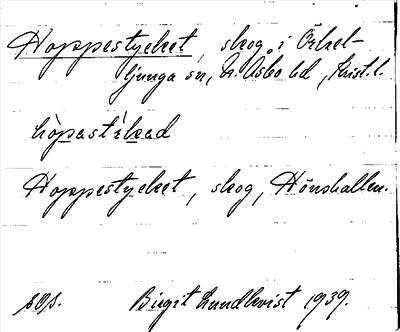 Hoppestycket, skog i Örkel-
ljunga sn, N. Åsbo hd, Krist. l.
Hoppestycket, skog, Hönshallen.
sos. Birgit Lundkvist 1939.